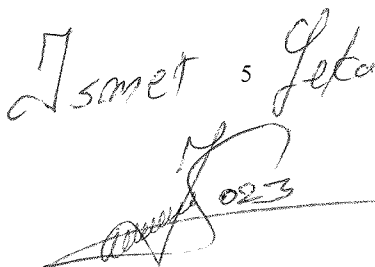 Ismet 5 Jeka
023